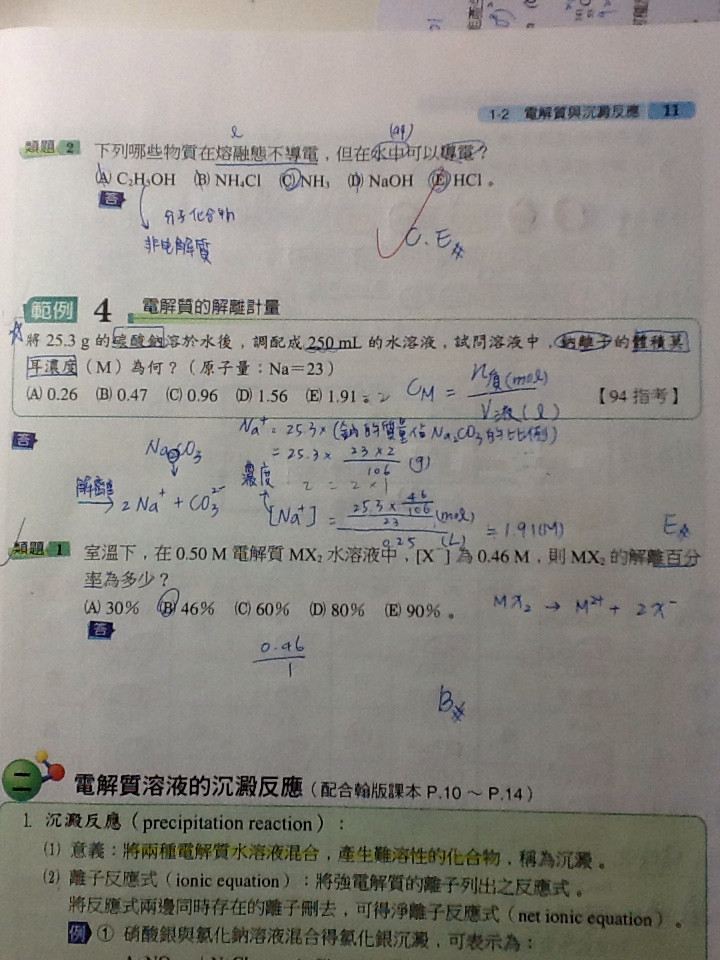 1-2 電解質與沉澱反應 11
l (aq)
類題 2 下列哪些物質在熔融態不導電，但在水中可以導電？
(A) C₂H₅OH (B) NH₄Cl (C) NH₃ (D) NaOH (E) HCl。
答
分子化合物
非电解質
C.E#
範例 4 電解質的解離計量
將 25.3 g 的碳酸鈉溶於水後，調配成 250 mL 的水溶液，試問溶液中，鈉離子的體積莫
耳濃度（M）為何？（原子量：Na＝23）
(A) 0.26 (B) 0.47 (C) 0.96 (D) 1.56 (E) 1.91。
【94 指考】
C_M = n質(mol) / V液(l)
答
Na⁺ = 25.3 × (鈉的質量佔 Na₂CO₃ 的比例)
Na₂CO₃
= 25.3 × 23×2 / 106 (g)
解離
→ 2Na⁺ + CO₃²⁻
濃度
2 = 2 × 1
[Na⁺] = 25.3 × 46/106 / 23 (mol) / 0.25 (L) ≒ 1.91(M)
E#
類題 1 室溫下，在 0.50 M 電解質 MX₂ 水溶液中，[X⁻] 為 0.46 M，則 MX₂ 的解離百分
率為多少？
(A) 30% (B) 46% (C) 60% (D) 80% (E) 90%。
MX₂ → M²⁺ + 2X⁻
答
0.46 / 1
B#
二 電解質溶液的沉澱反應（配合翰版課本 P.10 ～ P.14）
1. 沉澱反應（precipitation reaction）：
(1) 意義：將兩種電解質水溶液混合，產生難溶性的化合物，稱為沉澱。
(2) 離子反應式（ionic equation）：將強電解質的離子列出之反應式。
將反應式兩邊同時存在的離子刪去，可得淨離子反應式（net ionic equation）。
例 ① 硝酸銀與氯化鈉溶液混合得氯化銀沉澱，可表示為：